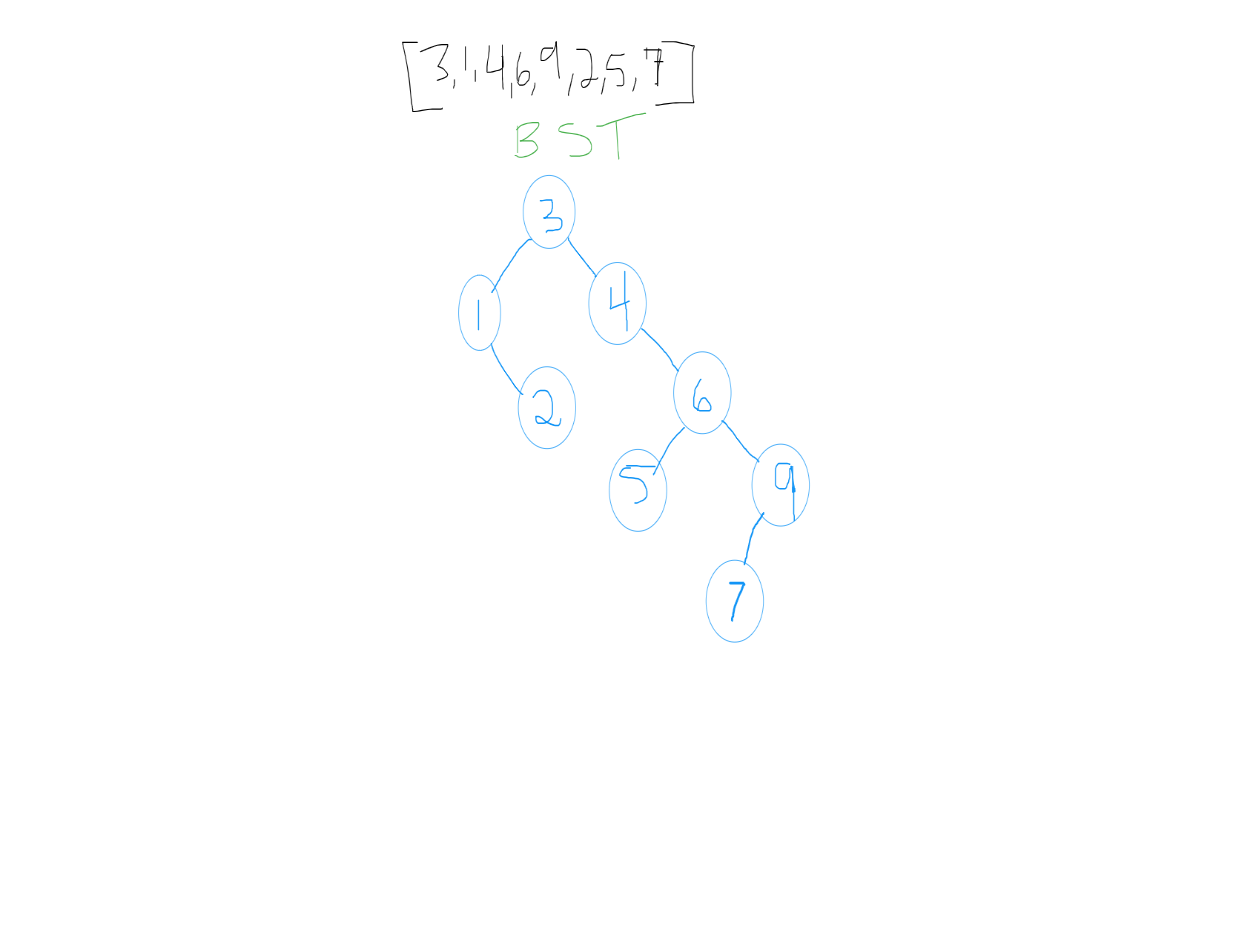 [3,1,4,6,9,2,5,7]
BST
3
1
4
2
6
5
9
7